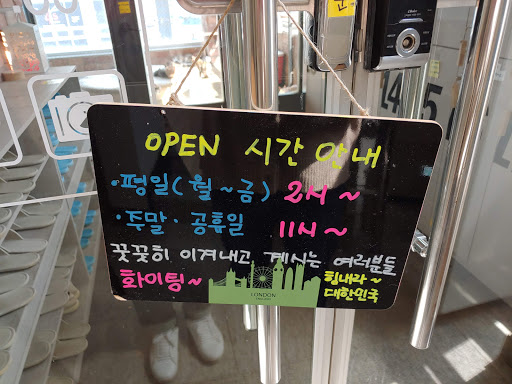 OPEN 시간 안내
·평일(월~금) 2시~
·주말·공휴일 11시~
꿋꿋히 이겨내고 계시는 여러분들
화이팅~ 힘내라~
대한민국
LONDON